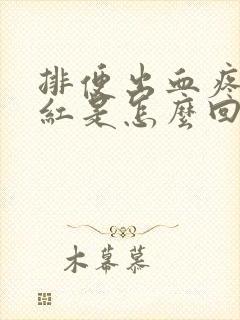 排便出血疼
紅是怎麼回
木幕慕